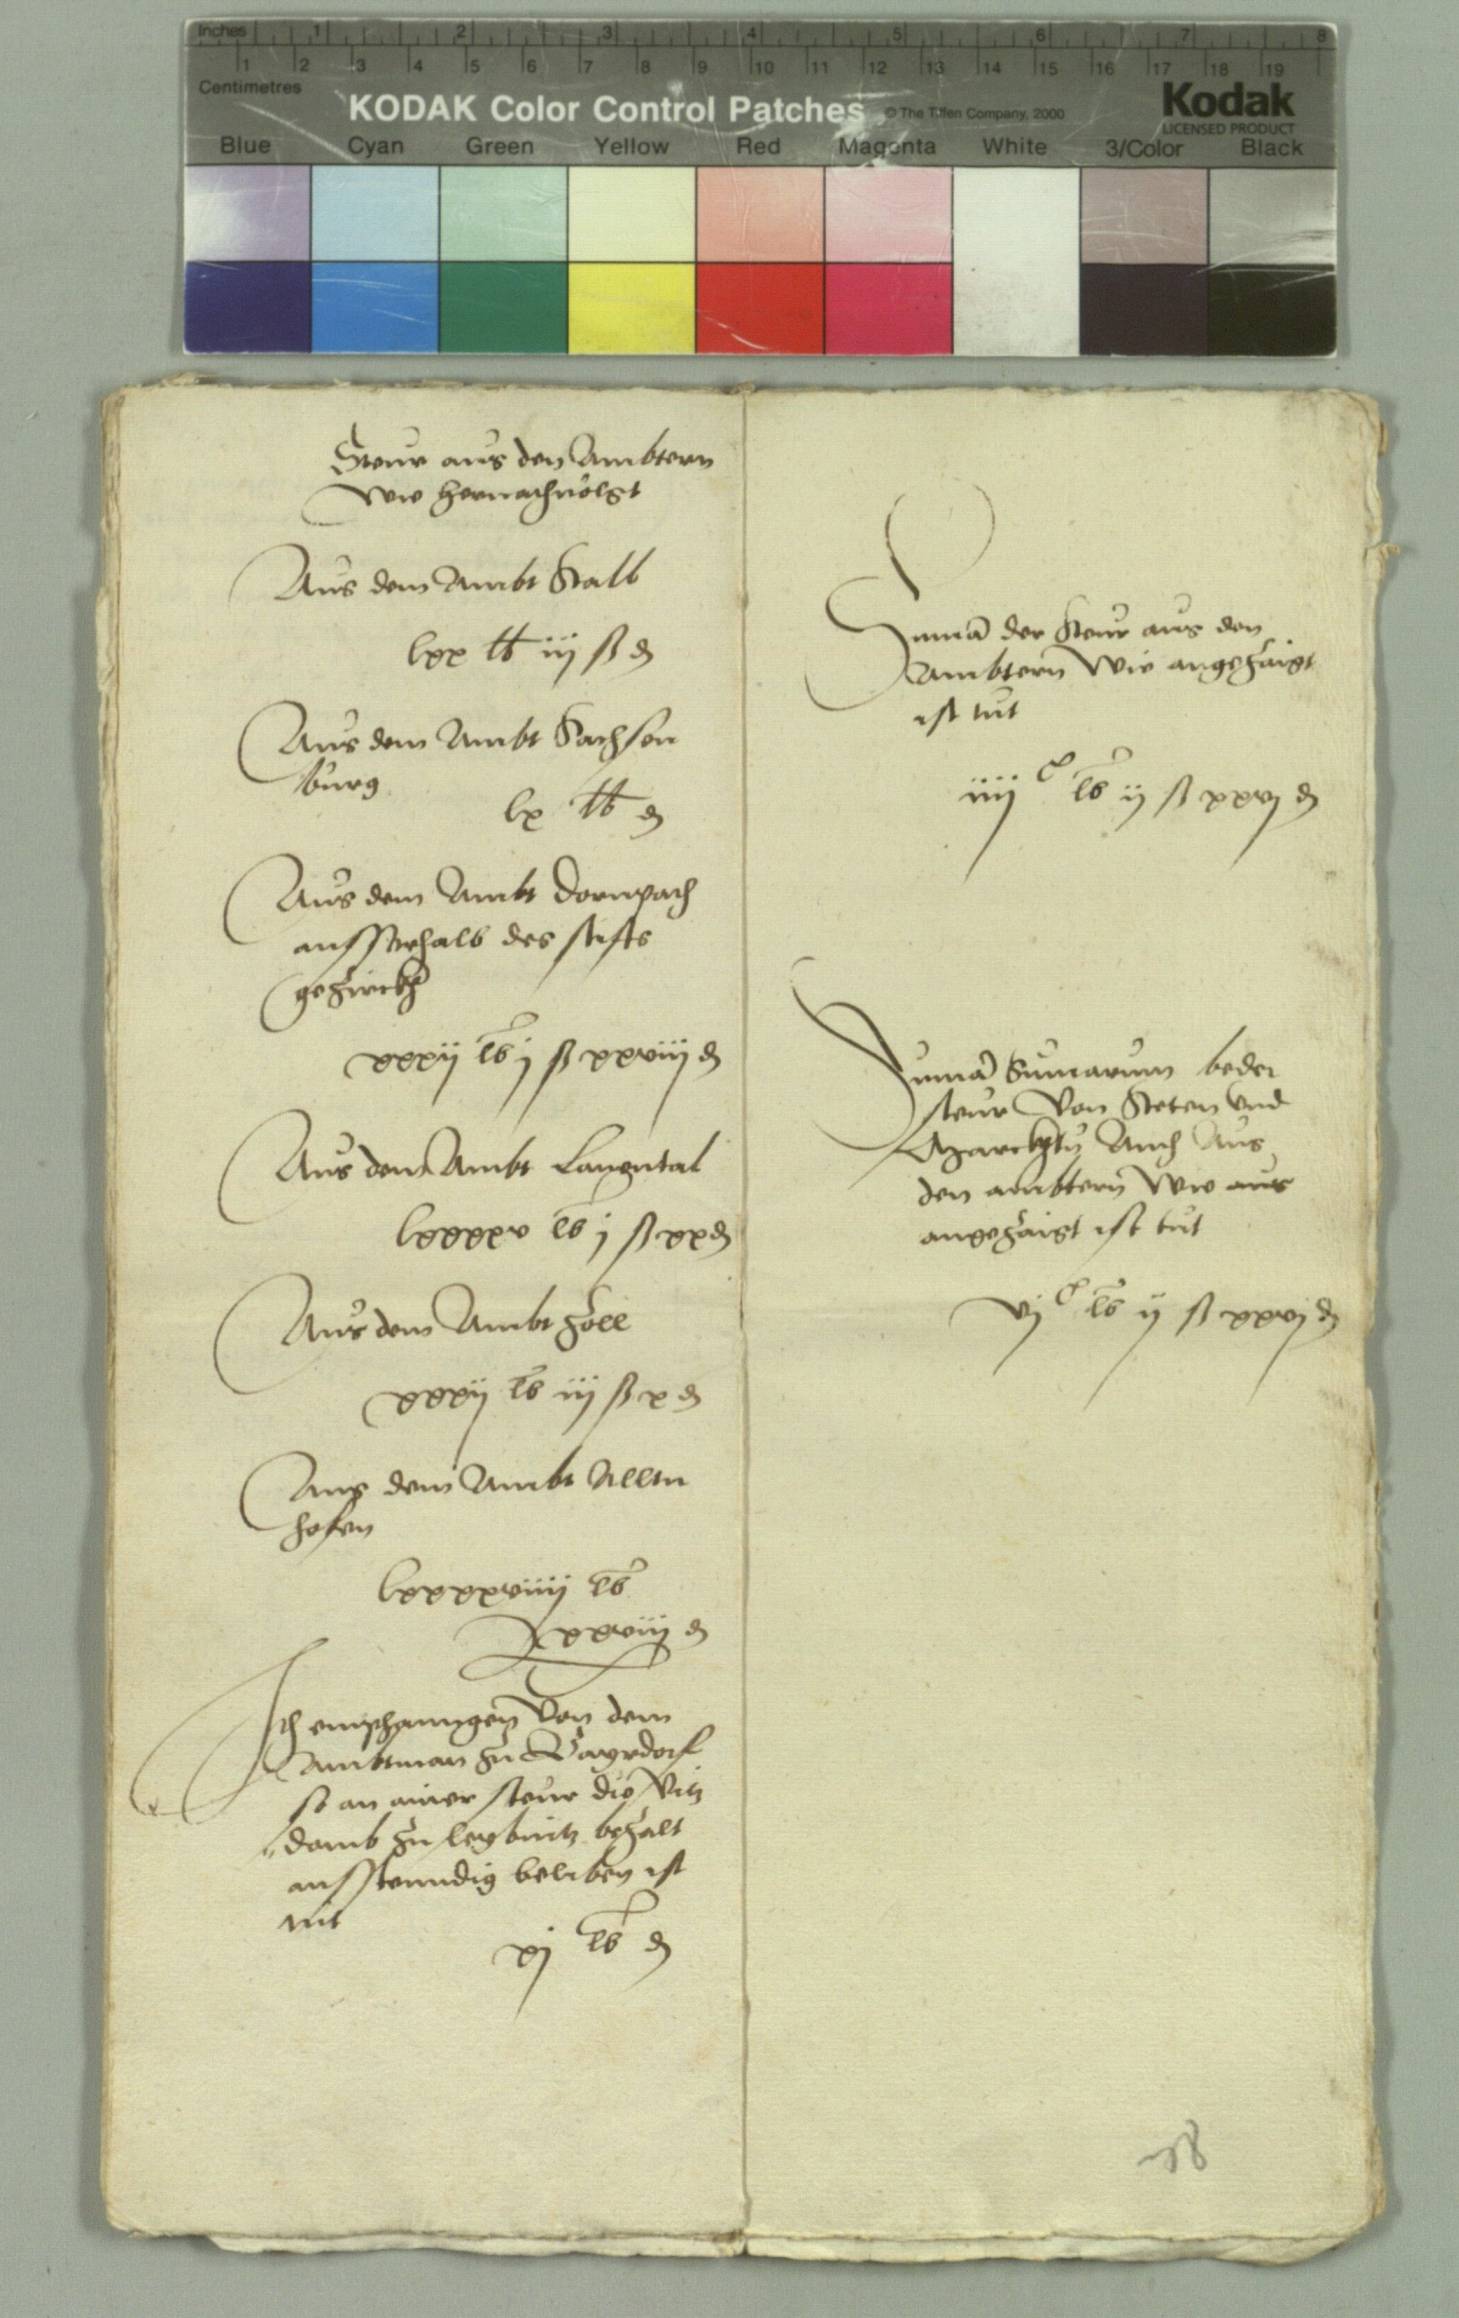 Inches 1 2 3 4 5 6 7 8
1 2 3 4 5 6 7 8 9 10 11 12 13 14 15 16 17 18 19
Centimetres
KODAK Color Control Patches © The Tiffen Company, 2000 Kodak
LICENSED PRODUCT
Blue Cyan Green Yellow Red Magenta White 3/Color Black
Steur aus den Ambtern
wie hernachuolgt
Aus dem Ambt Stall
lxx lb iij ß d
Aus dem Ambt Sachsen
burg
lx lb d
Aus dem Ambt Dornpach
ausserhalb des stifts
gezirckh
xxxij lb j ß xxviiij d
Aus dem Ambt Lauental
lxxxxv lb j ß xx d
Aus dem Ambt Zoll
xxxij lb iij ß x d
Aus dem Ambt Alltn
hofen
lxxxxviiij lb
xxviij d
Ich emphanngen von dem
Ambtman zu Bayrdorf
so an ainer steur die vitz
domb zu leybnitz bezalt
ausstenndig beliben ist
tut
xj lb d
Suma der Steur aus den
Ambtern wie angezaigt
ist tut
iiij C lb ij ß xxvj d
Suma Sumarum beder
steur von Steten vnd
Marckhtn Auch Aus
den ambtern wie aus
angezaigt ist tut
vj C lb ij ß xxvj d
38